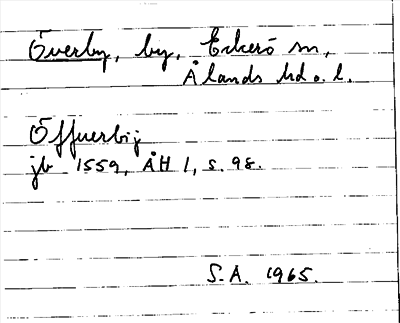 Överby, by, Eckerö sn,
Ålands hd o. l.
Öffuerbij
jb 1559, ÅH 1, s. 98.
S.A. 1965.